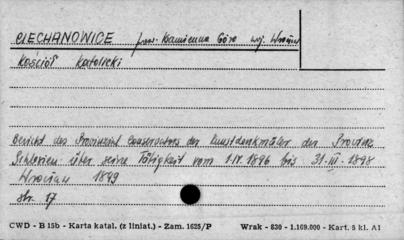 CIECHANOWICE pow. Kamienna Góra woj. Wrocław
Kościół katolicki
Bericht des Provinzial Conservators der Kunstdenkmäler der Provinz
Schlesien über seine Tätigkeit vom 1.IV.1896 bis 31.III.1898
Wrocław 1899
str. 17
CWD - B 15b - Karta katal. (z liniat.) - Zam. 1625/P Wrak - 830 - 1.169.000 - Kart. 5 kl. A1